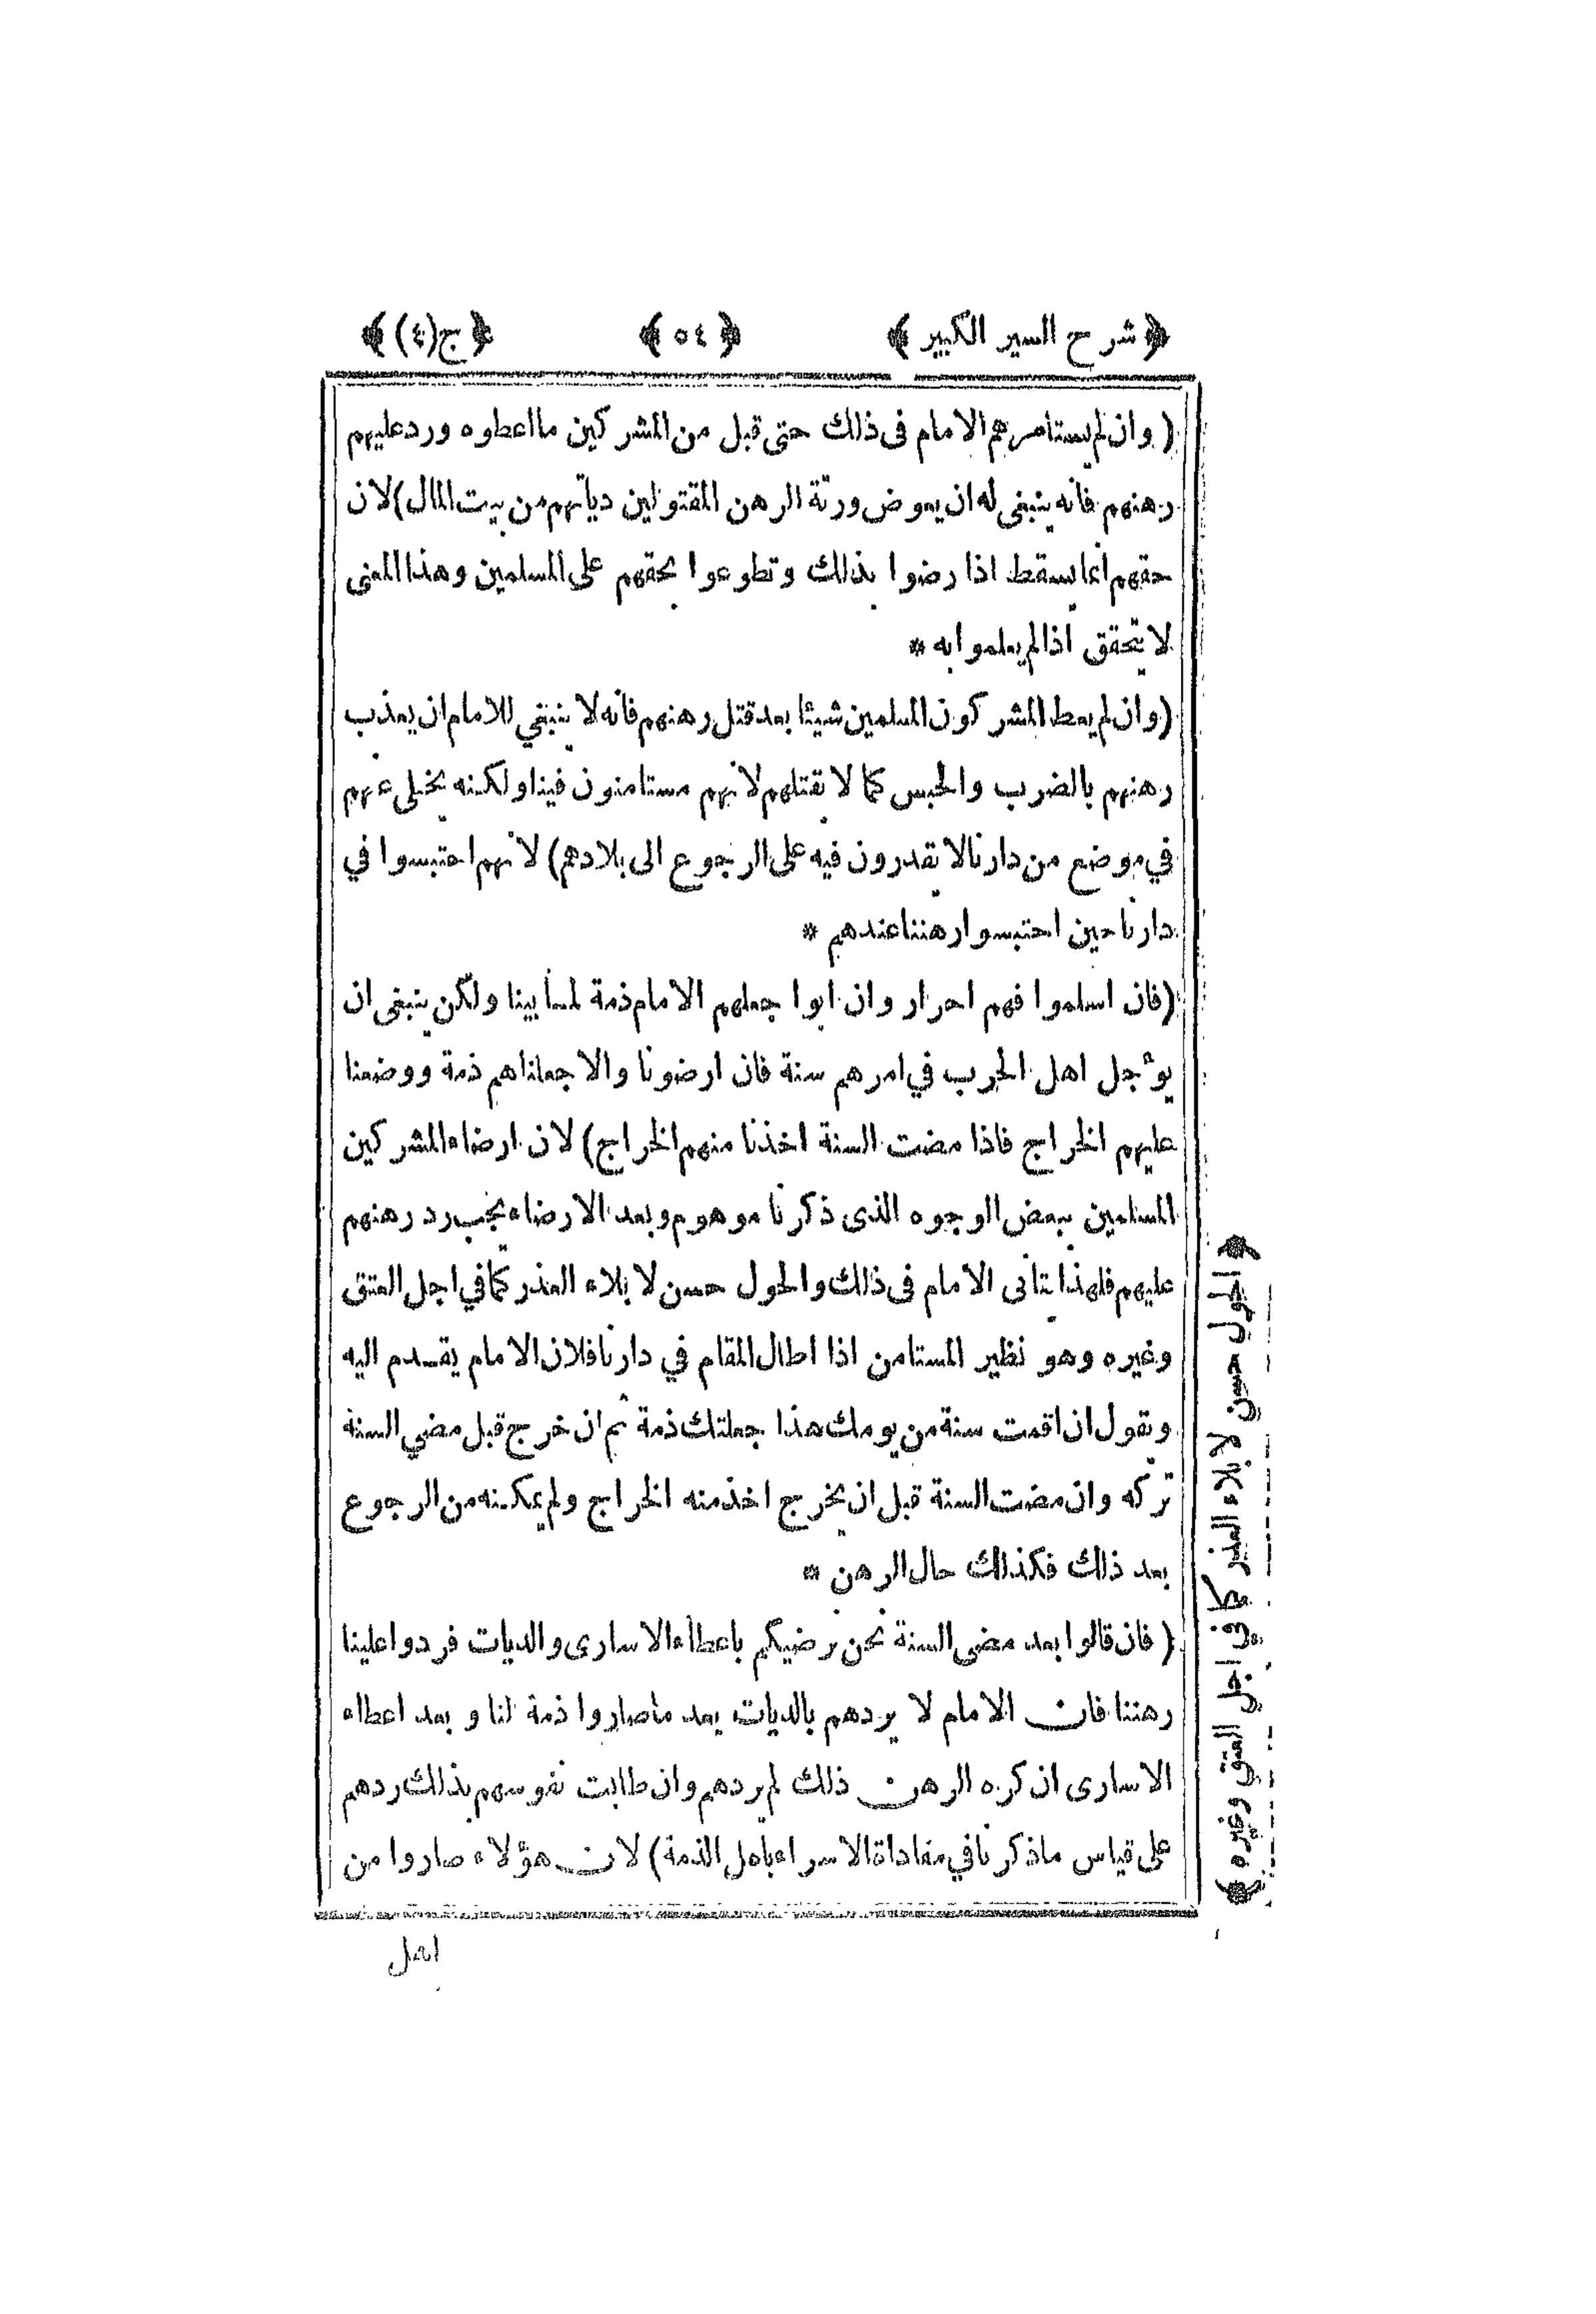 ﴿ شرح السير الكبير ﴾ ﴿ ٥٤ ﴾ ﴿ ج(٤) ﴾
( وان لم يستامرهم الامام فى ذلك حتى قبل من المشركين ما اعطوه ورد عليهم
رهنهم فانه ينبغى له ان يعوض ورثة الرهن المقتولين دياتهم من بيت المال) لان
حقهم انما يسقط اذا رضوا بذلك وتطوعوا بحقهم على المسلمين وهذا المعنى
لا يتحقق اذا لم يعلموا به *
(وان لم يعط المشركون المسلمين شيئا بعد قتل رهنهم فانه لا ينبغي للامام ان يعذب
رهنهم بالضرب والحبس كما لا تقتلهم لانهم مستامنون فينا ولكنه يخلى عنهم
في موضع من دارنا لا يقدرون فيه على الرجوع الى بلادهم) لانهم احتبسوا في
دارنا حين احتبسوا رهننا عندهم *
(فان اسلموا فهم احرار وان ابوا جعلهم الامام ذمة لما بينا ولكن ينبغى ان
يؤجل اهل الحرب في امرهم سنة فان ارضونا والا جعلناهم ذمة ووضعنا
عليهم الخراج فاذا مضت السنة اخذنا منهم الخراج) لان ارضاء المشركين
المسلمين ببعض الوجوه الذى ذكرنا موهوم وبعد الارضاء يجب رد رهنهم
عليهم فلهذا يتانى الامام فى ذلك والحول حسن لابلاء العذر كما في اجل العتق
وغيره وهو نظير المستامن اذا اطال المقام في دارنا فلان الامام يقدم اليه
ويقول ان اقمت سنة من يومك هذا جعلتك ذمة ثم ان خرج قبل مضي السنة
تركه وان مضت السنة قبل ان يخرج اخذ منه الخراج ولم يمكنه من الرجوع
بعد ذلك فكذلك حال الرهن *
( فان قالوا بعد مضى السنة نحن نرضيكم باعطاء الاسارى والديات فردوا علينا
رهننا فان الامام لا يردهم بالديات بعد ما صاروا ذمة لنا و بعد اعطاء
الاسارى ان كره الرهن ذلك لم يردهم وان طابت نفوسهم بذلك ردهم
على قياس ما ذكرنا في مفاداة الاسراء باهل الذمة) لان هؤلاء صاروا من
اهل
﴿ الحول حسن لابلاء العذر كما في اجل العتق وغيره ﴾